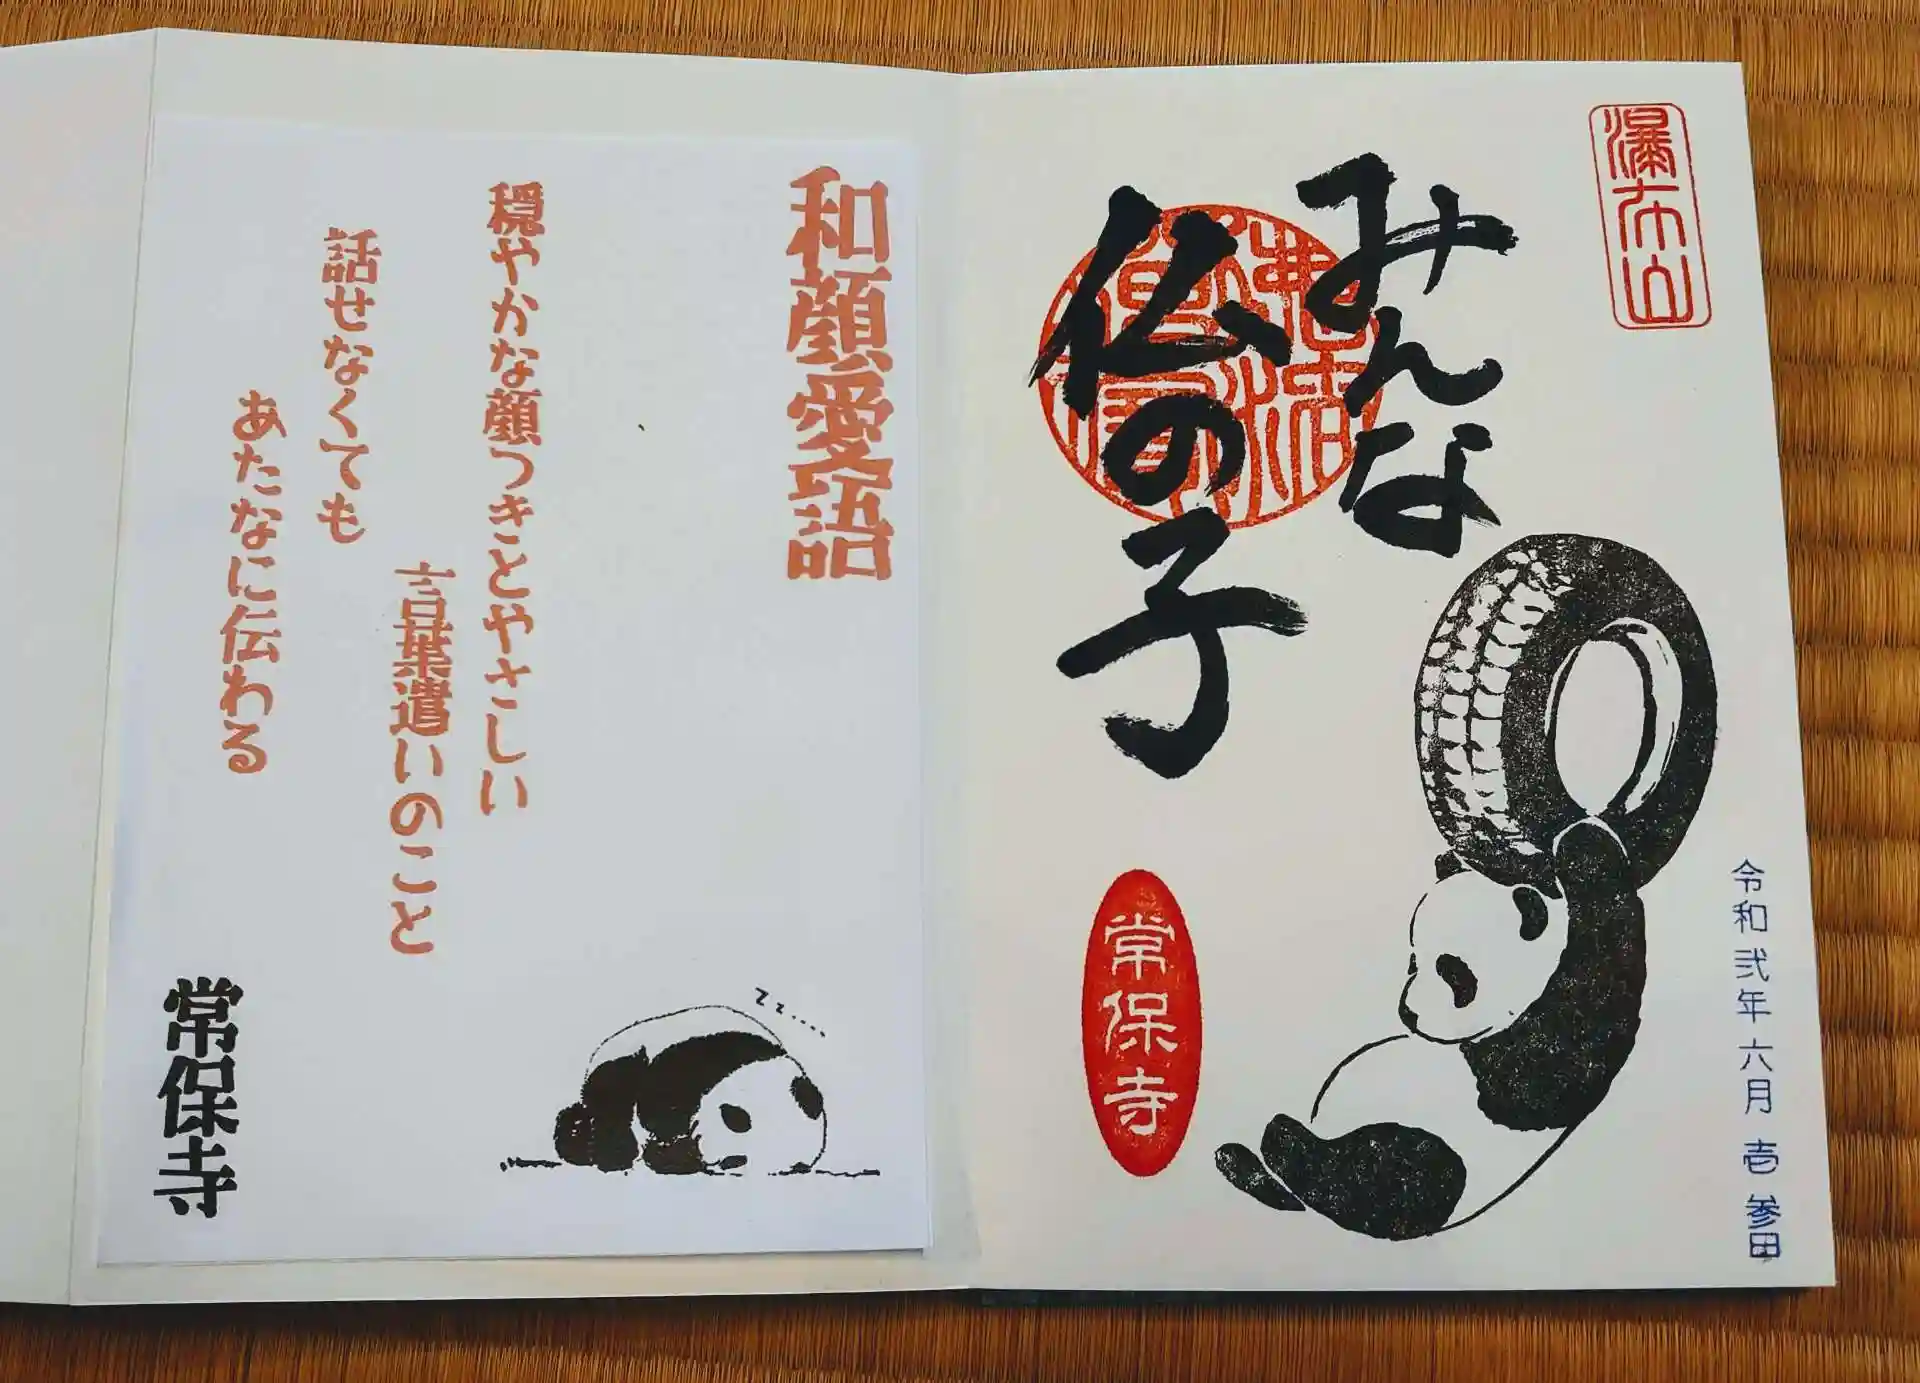 瀑布山
令和弐年六月壱参日
みんな
仏の子
常保寺
和顔愛語
穏やかな顔つきとやさしい
言葉遣いのこと
話せなくても
あたなに伝わる
常保寺
zz....